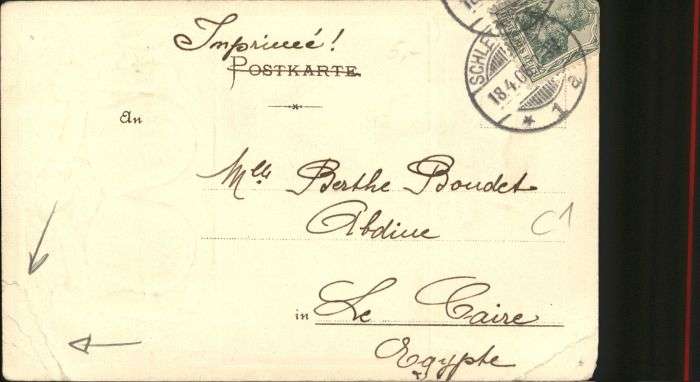 Imprimé!
POSTKARTE.
5,-
An
Mlle Berthe Boudet
Abdine
C1
in Le Caire
Egypte
SCHLE
18.4.0
* 1 a